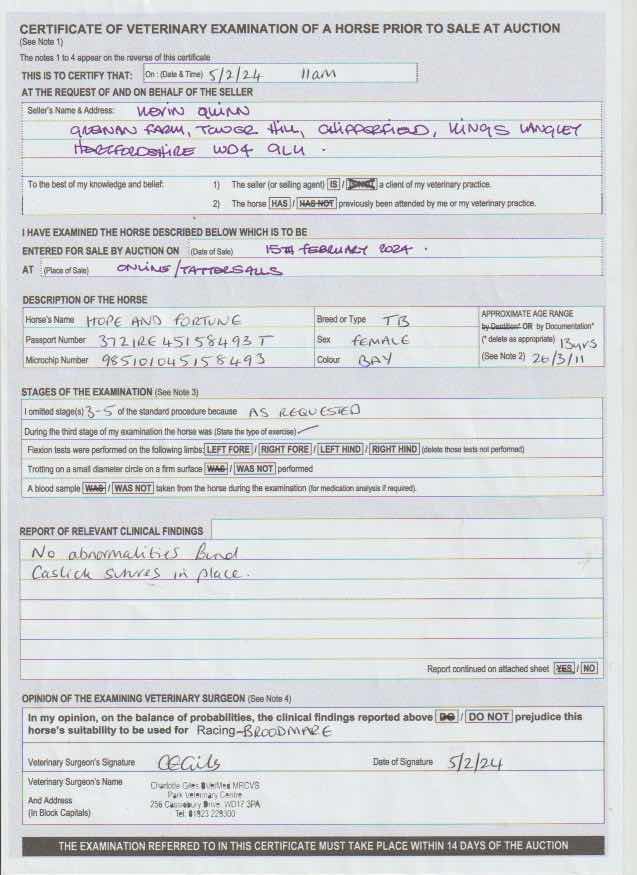 CERTIFICATE OF VETERINARY EXAMINATION OF A HORSE PRIOR TO SALE AT AUCTION
(See Note 1)
The notes 1 to 4 appear on the reverse of this certificate
THIS IS TO CERTIFY THAT: On : (Date & Time) 5/2/24 11am
AT THE REQUEST OF AND ON BEHALF OF THE SELLER
Seller's Name & Address: KEVIN QUINN
GREINAN FARM, TOWER HILL, CHIPPERFIELD, KINGS LANGLEY
HERTFORDSHIRE WD4 9LU.
To the best of my knowledge and belief: 1) The seller (or selling agent) IS / IS NOT a client of my veterinary practice.
2) The horse HAS / HAS NOT previously been attended by me or my veterinary practice.
I HAVE EXAMINED THE HORSE DESCRIBED BELOW WHICH IS TO BE
ENTERED FOR SALE BY AUCTION ON (Date of Sale) 15TH FEBRUARY 2024.
AT (Place of Sale) ONLINE/TATTERSALLS
DESCRIPTION OF THE HORSE
Horse's Name HOPE AND FORTUNE Breed or Type TB APPROXIMATE AGE RANGE
by Dentition* OR by Documentation*
Passport Number 372IRE45158493T Sex FEMALE (* delete as appropriate) 13yrs
Microchip Number 985101045158493 Colour BAY (See Note 2) 20/3/11
STAGES OF THE EXAMINATION (See Note 3)
I omitted stage(s) 3-5 of the standard procedure because AS REQUESTED
During the third stage of my examination the horse was (State the type of exercise)
Flexion tests were performed on the following limbs: LEFT FORE / RIGHT FORE / LEFT HIND / RIGHT HIND (delete those tests not performed)
Trotting on a small diameter circle on a firm surface WAS / WAS NOT performed
A blood sample WAS / WAS NOT taken from the horse during the examination (for medication analysis if required).
REPORT OF RELEVANT CLINICAL FINDINGS
No abnormalities found
Caslick sutures in place.
Report continued on attached sheet YES / NO
OPINION OF THE EXAMINING VETERINARY SURGEON (See Note 4)
In my opinion, on the balance of probabilities, the clinical findings reported above DO / DO NOT prejudice this
horse's suitability to be used for Racing-BROODMARE
Veterinary Surgeon's Signature CEGiles Date of Signature 5/2/24
Veterinary Surgeon's Name
And Address
(In Block Capitals)
Charlotte Giles BVetMed MRCVS
Park Veterinary Centre
256 Cassiobury Drive, WD17 3PA
Tel: 01923 223300
THE EXAMINATION REFERRED TO IN THIS CERTIFICATE MUST TAKE PLACE WITHIN 14 DAYS OF THE AUCTION